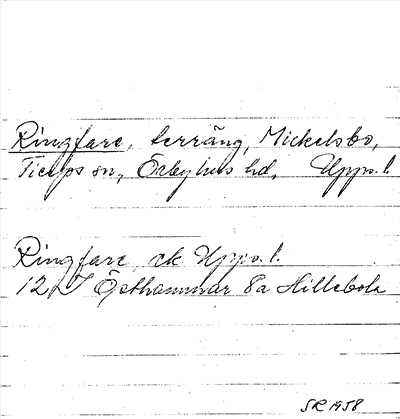 Ringfare, terräng, Mickelsbo,
Tierps sn, Örbyhus hd, Upps. l.
Ringfare, ek Upps. l.
12 I Östhammar 8a Hillebola
SR 1958